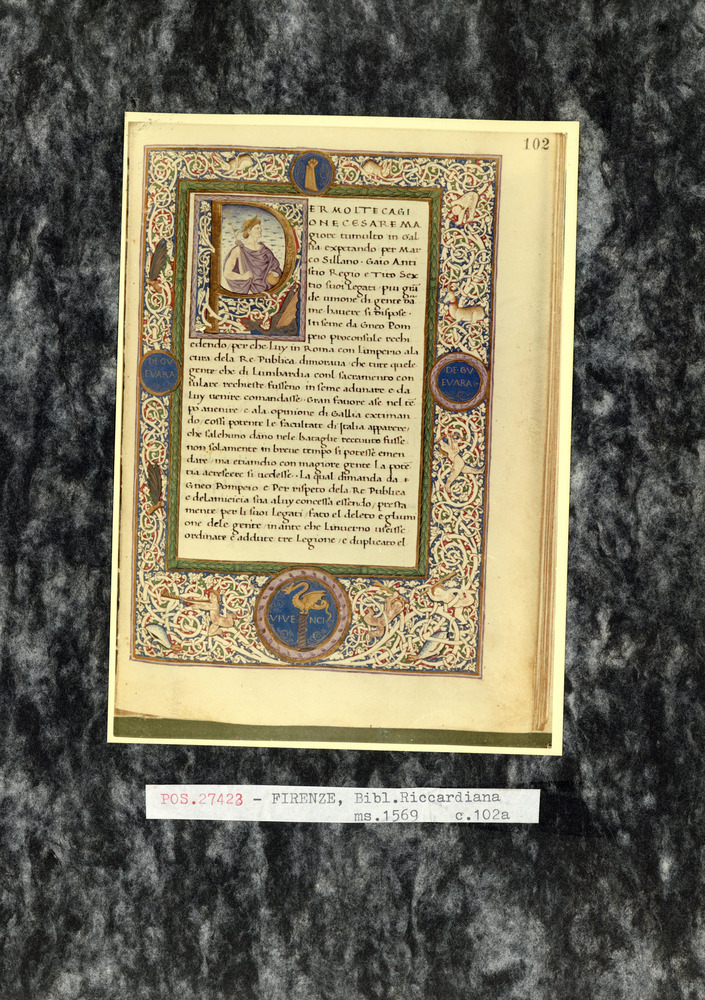 102
ER MOLTE CAGI
ONE CESARE MA
giore tumulto in Gal
lia expetando per Mar
co Sillano · Gaio Anti
stio Regio e Tito Sex
tio suoi Legati · piu grā
de unione di gente ha
me havere si dispose ·
Inseme da Gneo Pom
peio proconsule rechi
edendo, per che Luy in Roma con Limperio ala
cura dela Re Publica dimorava che tute quele
gente che di Lumbardia conl sacramento con
sulare rechieste fusseno inseme adunate e da
Luy venire comandasse · Gran favore a se nel tē
po avenire e ala opinione di Gallia extiman
do, cossi potente Le facultate di Italia apparere,
che s'alchuno dano nele bataglie receuuto fusse
non solamente in breve tempo si potesse emen
dare, ma etiamdio con magiore gente La potē
tia acrescere si vedesse · La qual dimanda da
Gneo Pompeio e Per rispeto dela Re Publica
e delamicicia sua aluy concessa essendo, presta
mente per li suoi Legati, fato el deleto e gluni
one dele gente, inante che Linverno uscisse
ordinate e addute tre Legione, e duplicato el
DE·GV
EVARA
DE·GV
EVARA
VIVE NCI
POS.27423 - FIRENZE, Bibl.Riccardiana
ms.1569 c.102a